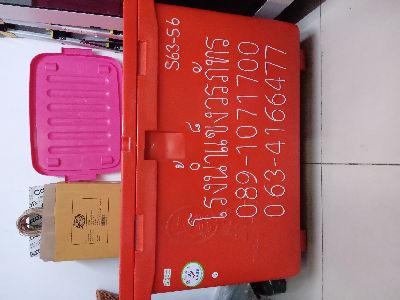 S63-56
โรงน้ำแข็งวรภัทร
089-1071700
063-4166477